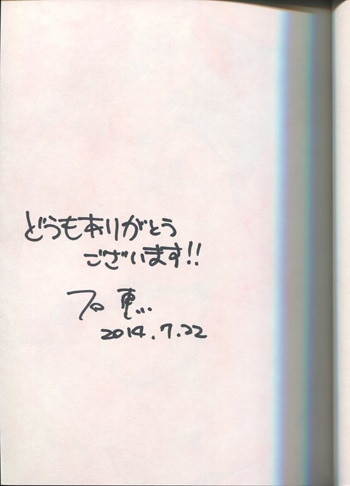 どうもありがとう
ございます!!
2014.7.22